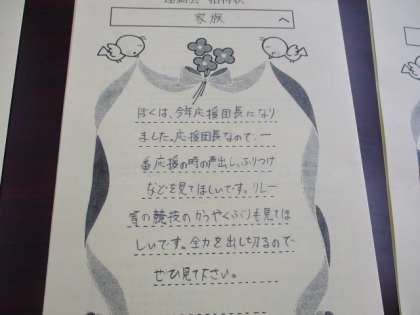 運動会 招待状
家族 へ
ぼくは、今年応援団長になり
ました。応援団長なので一
番応援の時の声出し、ふりつけ
などを見てほしいです。リレー
等の競技のかつやくぶりも見てほ
しいです。全力を出し切るので
ぜひ見て下さい。